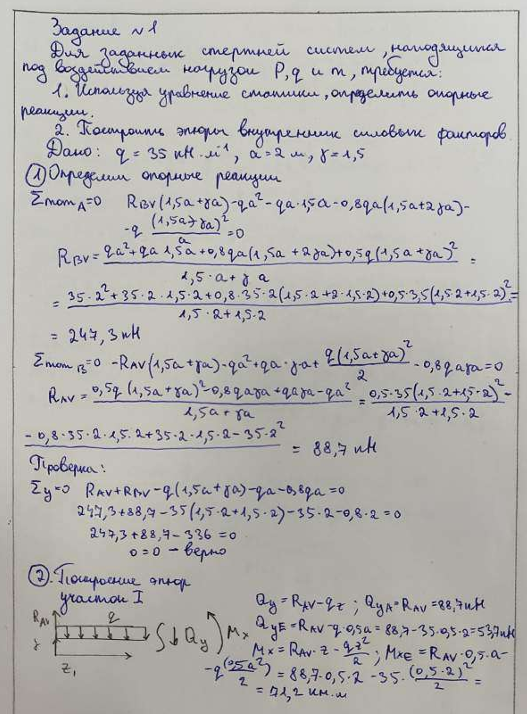 Задание №1
Для заданных стертней систем, находящихся
под воздействием нагрузок P, q и m, требуется:
1. Используя уравнение статики, определить опорные
реакции.
2. Построить эпюры внутренних силовых факторов.
Дано: q = 35 кН·м⁻¹, a = 2 м, γ = 1,5
① Определим опорные реакции
Σmom_A=0 R_BV(1,5a+γa)-qa²-qa·1,5a-0,8qa(1,5a+2γa)-
-q (1,5a+γa)²/a =0
R_BV = (qa²+qa·1,5a+0,8qa(1,5a+2γa)+0,5q(1,5a+γa)²)/(1,5·a+γa) =
= (35·2²+35·2·1,5·2+0,8·35·2(1,5·2+2·1,5·2)+0,5·3,5(1,5·2+1,5·2)²)/(1,5·2+1,5·2) =
= 247,3 кН
Σmom_B=0 -R_AV(1,5a+γa)-qa²+qa·γa+ q(1,5a+γa)²/2 -0,8qaγa=0
R_AV = (0,5q(1,5a+γa)²-0,8qaγa+qaγa-qa²)/(1,5a+γa) = (0,5·35(1,5·2+1,5·2)²-
-0,8·35·2·1,5·2+35·2·1,5·2-35·2²)/(1,5·2+1,5·2) = 88,7 кН
Проверка:
Σy=0 R_AV+R_BV-q(1,5a+γa)-qa-0,8qa=0
247,3+88,7-35(1,5·2+1,5·2)-35·2-0,8·2=0
247,3+88,7-336=0
0=0 - верно
② Построение эпюр
участок I
R_AV q Q_y M_x
z₁
Q_y = R_AV-qz ; Q_yA=R_AV=88,7кН
Q_yE=R_AV-q·0,5a=88,7-35·0,5·2=53,7кН
M_x=R_AV·z-qz²/2 ; M_xE=R_AV·0,5·a-
-q(0,5a²)/2 =88,7·0,5·2-35·(0,5·2)²/2 =
=71,2 кН·м